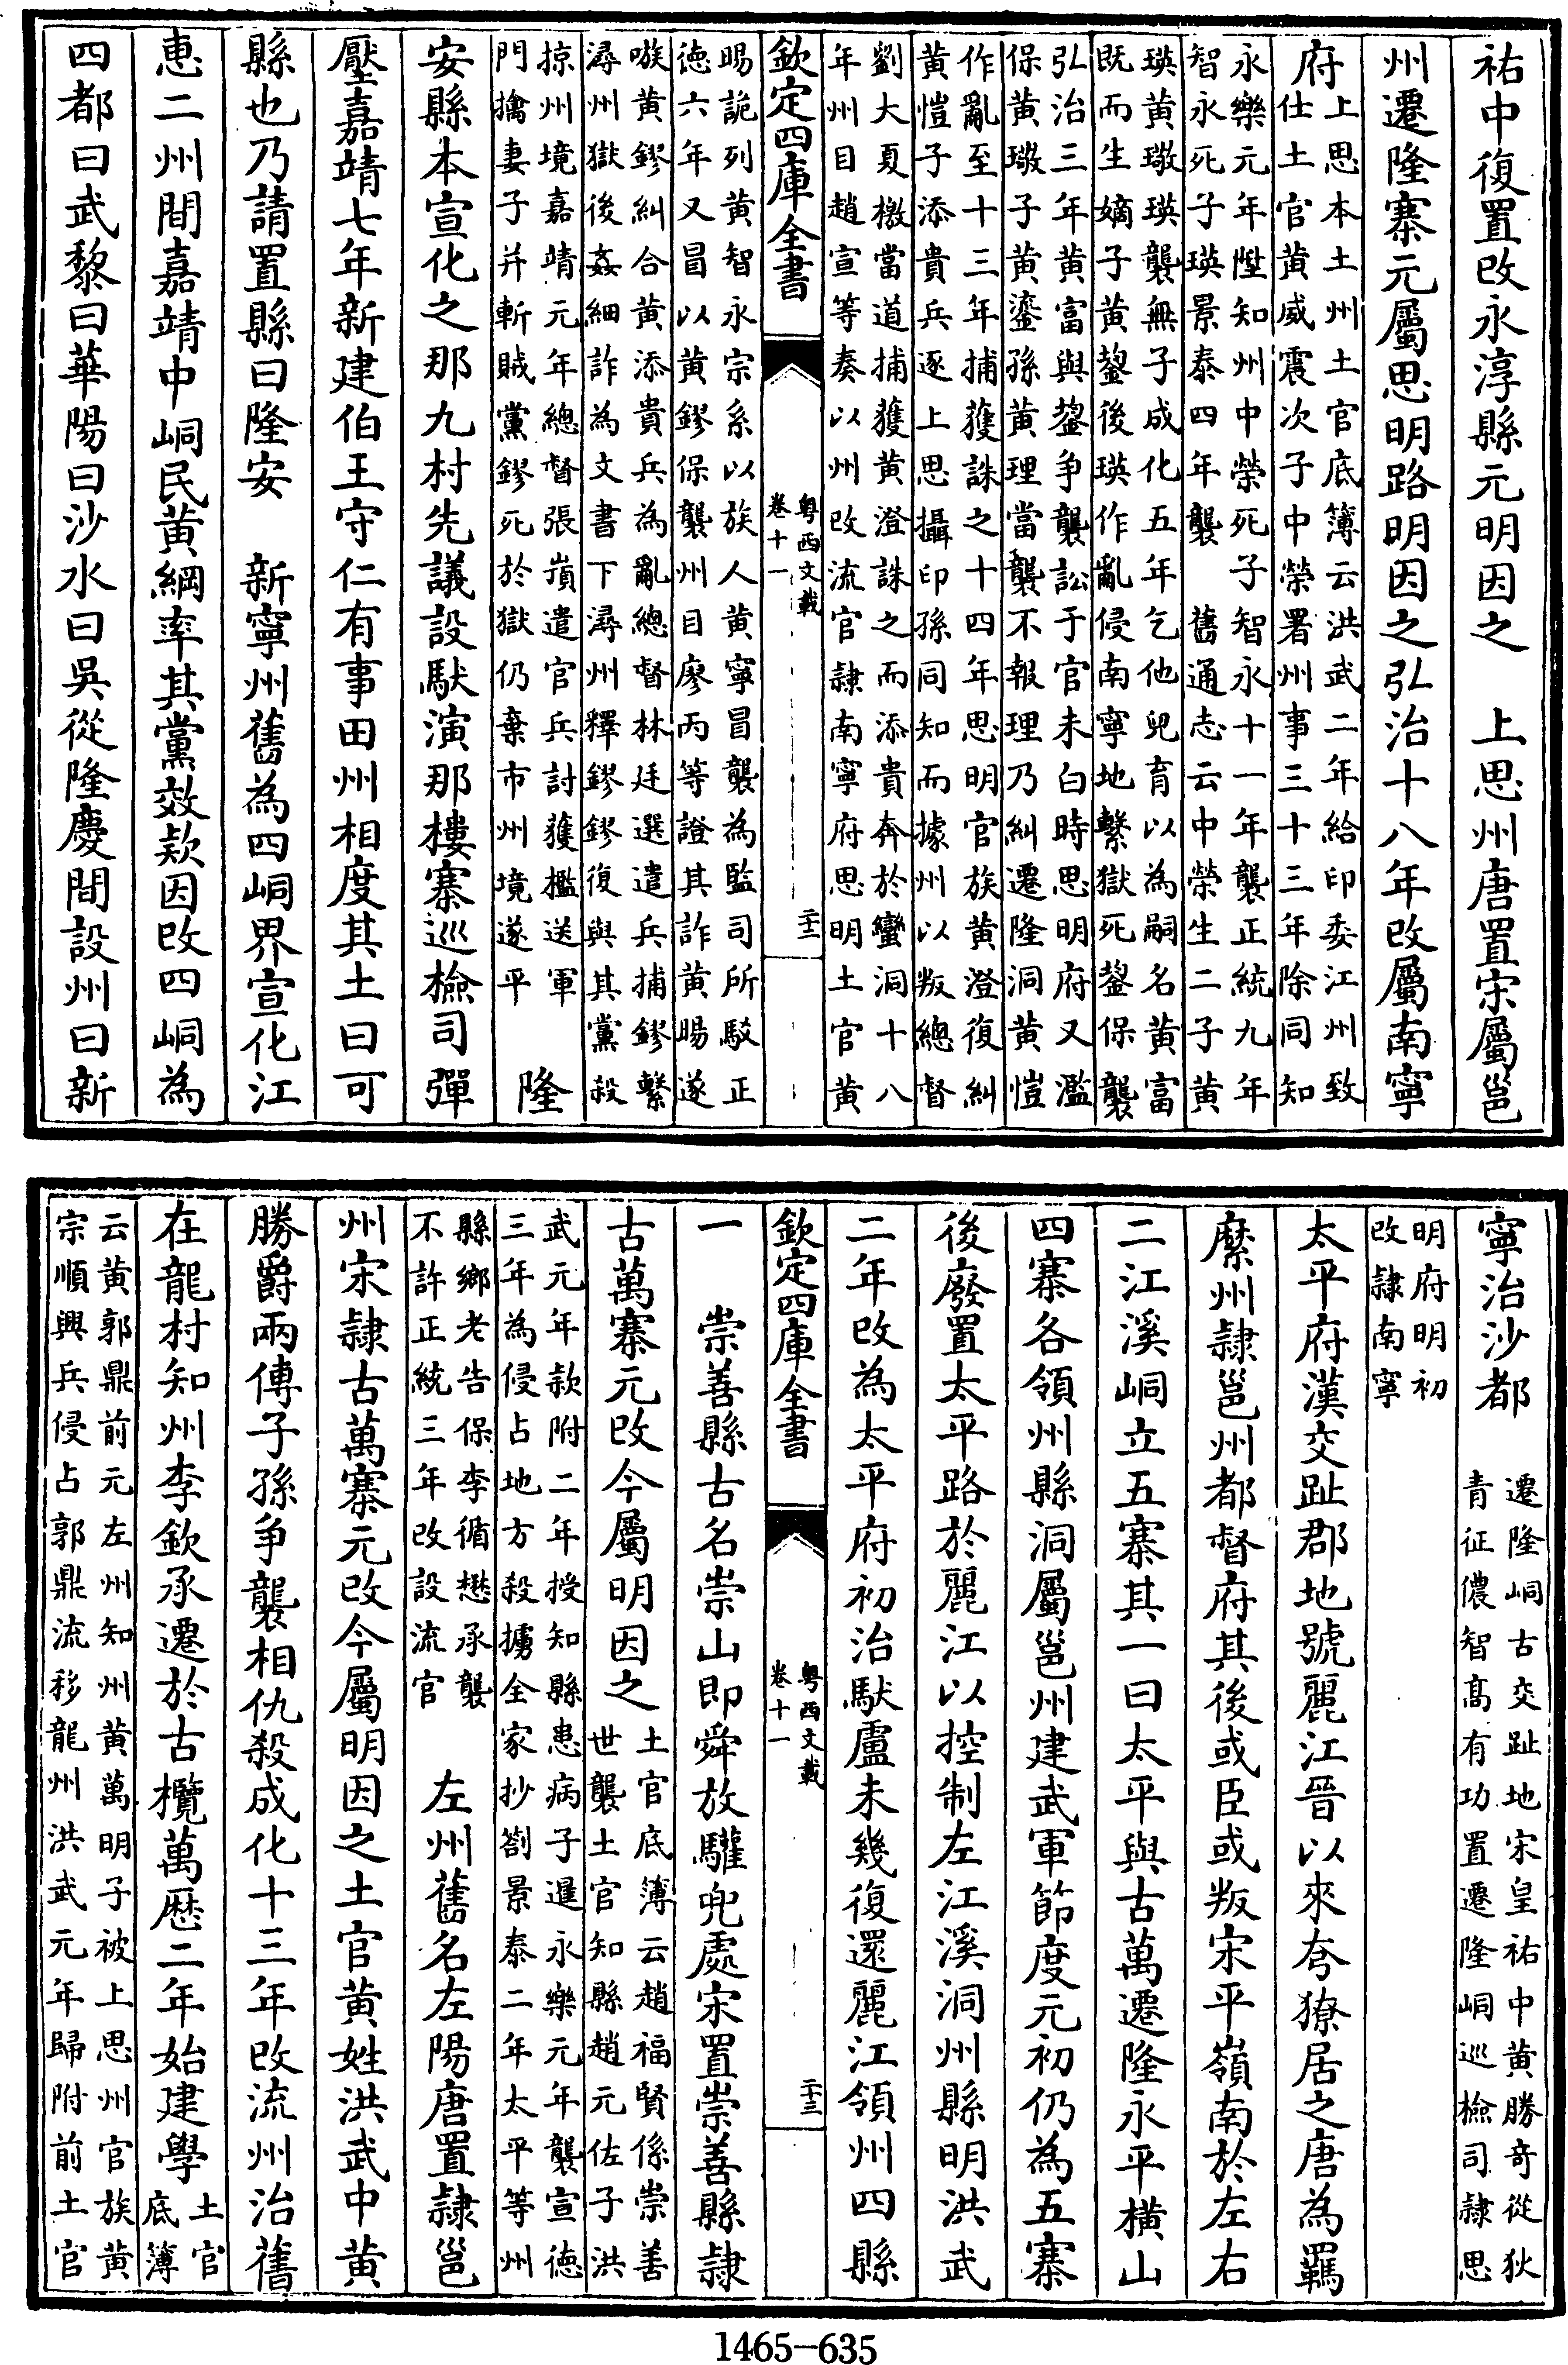 祐中復置改永淳縣元明因之　上思州唐置宋屬邕
州遷隆寨元屬思明路明因之弘治十八年改屬南寧
府
上思本土州土官底簿云洪武二年給印委江州致
仕土官黃威震次子中榮署州事三十三年除同知
永樂元年陞知州中榮死子智永十一年襲正統九年
智永死子瑛景泰四年襲　舊通志云中榮生二子黃
瑛黃璥瑛襲無子成化五年乞他兒育以為嗣名黃富
既而生嫡子黃鋆後瑛作亂侵南寧地繫獄死鋆保襲
弘治三年黃富與鋆爭襲訟于官未白時思明府又濫
保黃璥子黃鎏孫黃理當襲不報理乃糾遷隆洞黃愷
作亂至十三年捕獲誅之十四年思明官族黃澄復糾
黃愷子添貴兵逐上思攝印孫同知而據州以叛總督
劉大夏檄當道捕獲黃澄誅之而添貴奔於蠻洞十八
年州目趙宣等奏以州改流官隸南寧府思明土官黃
欽定四庫全書
粵西文載
卷十一
二十二
暘詭列黃智永宗系以族人黃寧冒襲為監司所駁正
德六年又冒以黃鏐保襲州目廖丙等證其詐黃暘遂
嗾黃鏐糾合黃添貴兵為亂總督林廷選遣兵捕鏐繫
潯州獄後姦細詐為文書下潯州釋鏐鏐復與其黨殺
掠州境嘉靖元年總督張嵿遣官兵討獲檻送軍
門擒妻子并斬賊黨鏐死於獄仍棄市州境遂平
隆
安縣本宣化之那九村先議設馱演那樓寨巡檢司彈
壓嘉靖七年新建伯王守仁有事田州相度其土曰可
縣也乃請置縣曰隆安　新寧州舊為四峒界宣化江
惠二州間嘉靖中峒民黃綱率其黨效款因改四峒為
四都曰武黎曰華陽曰沙水曰吳從隆慶間設州曰新
寧治沙都
遷隆峒古交趾地宋皇祐中黃勝奇從狄
青征儂智高有功置遷隆峒巡檢司隸思
明府明初
改隸南寧
太平府漢交趾郡地號麗江晉以來夸獠居之唐為羈
縻州隸邕州都督府其後或臣或叛宋平嶺南於左右
二江溪峒立五寨其一曰太平與古萬遷隆永平橫山
四寨各領州縣洞屬邕州建武軍節度元初仍為五寨
後廢置太平路於麗江以控制左江溪洞州縣明洪武
二年改為太平府初治馱盧未幾復還麗江領州四縣
欽定四庫全書
粵西文載
卷十一
二十三
一　崇善縣古名崇山即舜放驩兜處宋置崇善縣隸
古萬寨元改今屬明因之
土官底簿云趙福賢係崇善
世襲土官知縣趙元佐子洪
武元年款附二年授知縣患病子暹永樂元年襲宣德
三年為侵占地方殺擄全家抄劄景泰二年太平等州
縣鄉老告保李循懋承襲
不許正統三年改設流官
左州舊名左陽唐置隸邕
州宋隸古萬寨元改今屬明因之土官黃姓洪武中黃
勝爵兩傳子孫爭襲相仇殺成化十三年改流州治舊
在龍村知州李欽承遷於古欖萬歷二年始建學
土官
底簿
云黃郭鼎前元左州知州黃萬明子被上思州官族黃
宗順興兵侵占郭鼎流移龍州洪武元年歸附前土官
1465-635